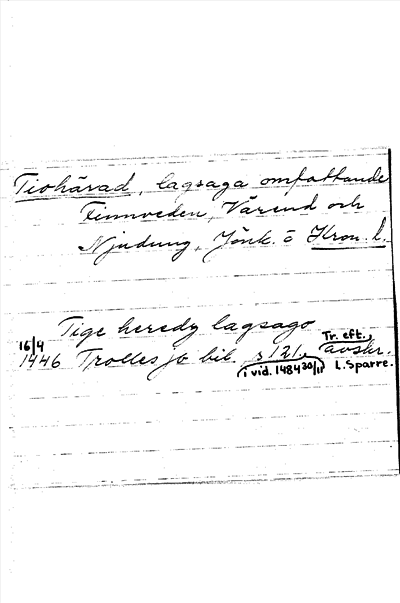 Tiohärad, lagsaga omfattande
Finnveden, Värend och
Njudung, Jönk. o Kron. l.
Tige heredz lagsago
16/4 1446 Trollesjö bibl. s 121, Tr. eft. avskr.
i vid. 1484 30/11 L. Sparre.